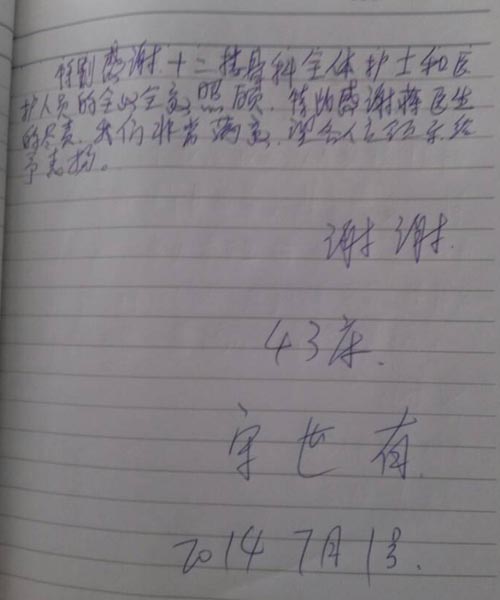 特别感谢十二楼骨科全体护士和医
护人员的全心全意照顾。特别感谢蒋医生
的尽责。我们非常满意，望
予表扬。
谢谢.
43床.
世有
2014 7月1号.